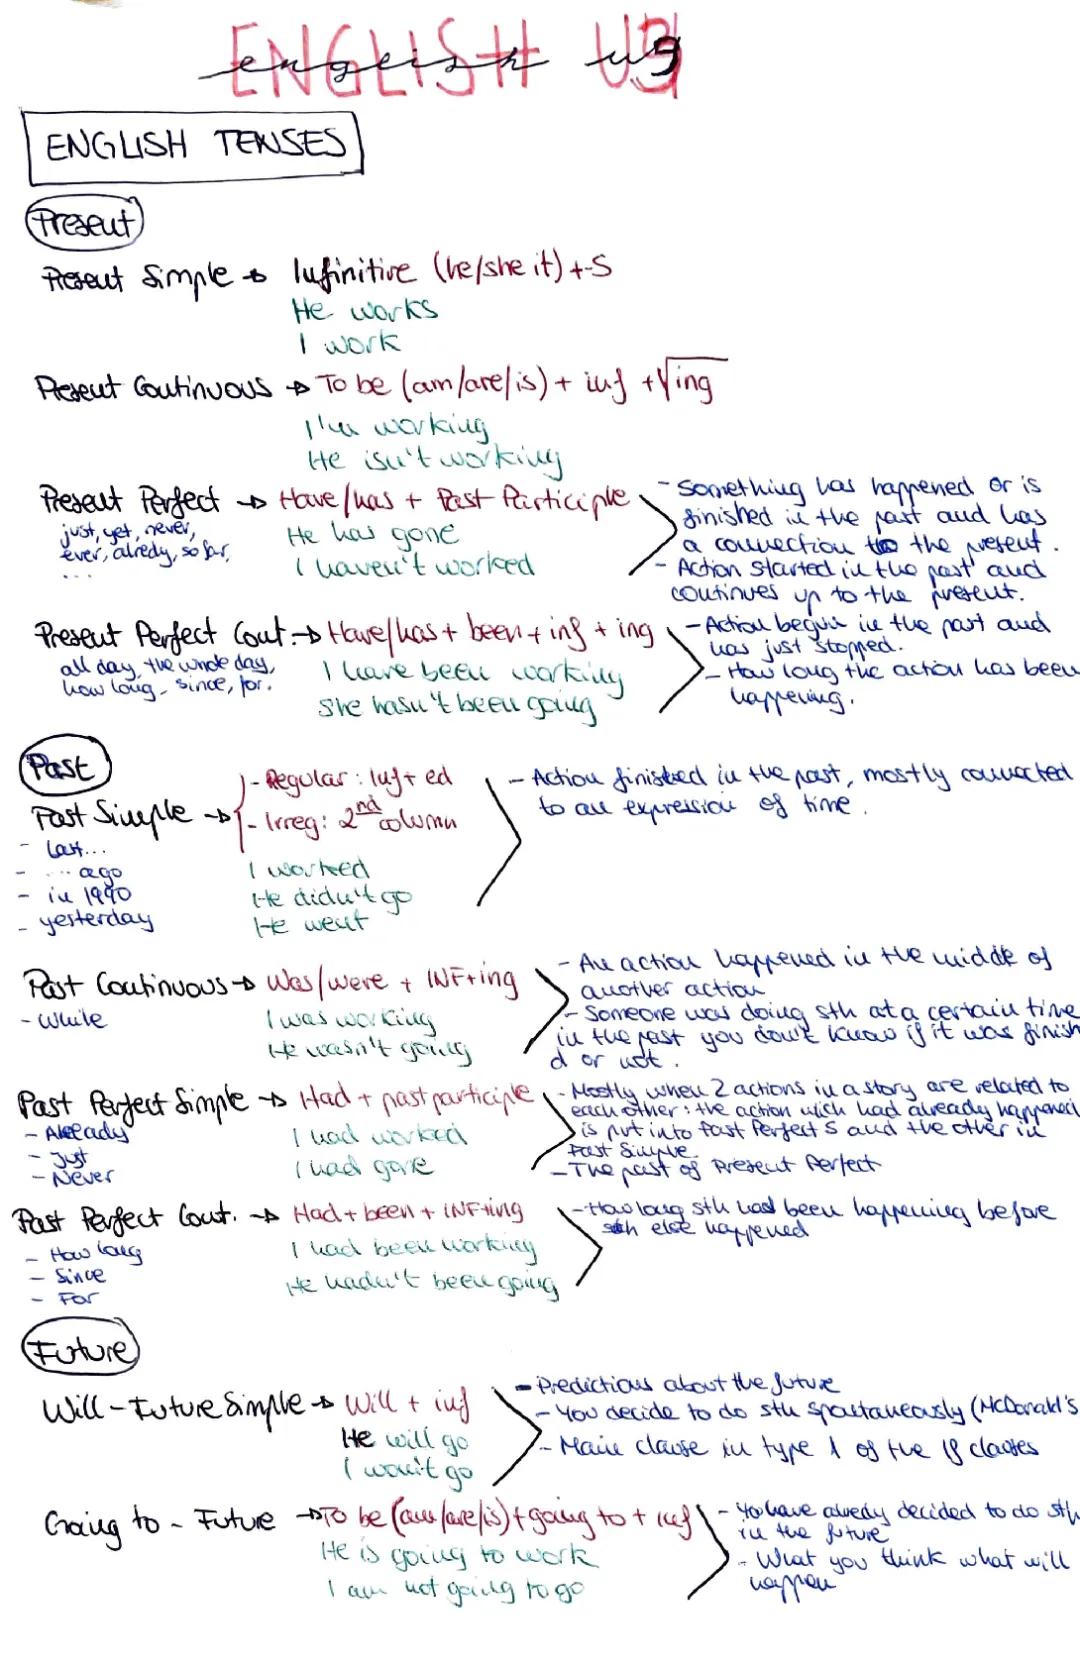 ENGLISH U3
english u3
ENGLISH TENSES
Present
Present Simple → Infinitive (he/she it) +-S
He works
I work
Present Continuous → To be (am/are/is) + inf + √ing
I'm working
He isn't working
Present Perfect → Have/has + Past Participle
just, yet, never,
ever, alredy, so far,
...
He has gone
I haven't worked
- Something has happened or is
finished in the past and has
a connection to the present.
- Action started in the past and
continues up to the present.
Present Perfect Cont. → Have/has + been + inf + ing
all day, the whole day,
how long, since, for.
I have been working
She hasn't been going
- Action begun in the past and
has just stopped.
- How long the action has been
happening.
Past
Past Simple →
- Regular: Inf + ed
- Irreg: 2nd column
- last...
- ... ago
- in 1990
- yesterday
I worked
He didn't go
He went
- Action finished in the past, mostly connected
to an expression of time.
Past Continuous → Was/were + INF+ing
- While
I was working
He wasn't going
- An action happened in the middle of
another action
- Someone was doing sth at a certain time
in the past you don't know if it was finish
d or not.
Past Perfect Simple → Had + past participle
- Already
- Just
- Never
I had worked
I had gone
- Mostly when 2 actions in a story are related to
each other: the action wich had already happened
is put into Past Perfect S and the other in
Past Simple.
- The past of Present Perfect
Past Perfect Cont. → Had + been + INF+ing
- How long
- Since
- For
I had been working
He hadn't been going
- How long sth had been happening before
sth else happened
Future
Will - Future Simple → Will + inf
He will go
I won't go
- Predictions about the future
- You decide to do sth spontaneously (McDonald's
- Main clause in type 1 of the if clauses
Going to - Future → To be (am/are/is) + going to + inf
He is going to work
I am not going to go
- You have alredy decided to do sth
in the future
- What you think what will
happen